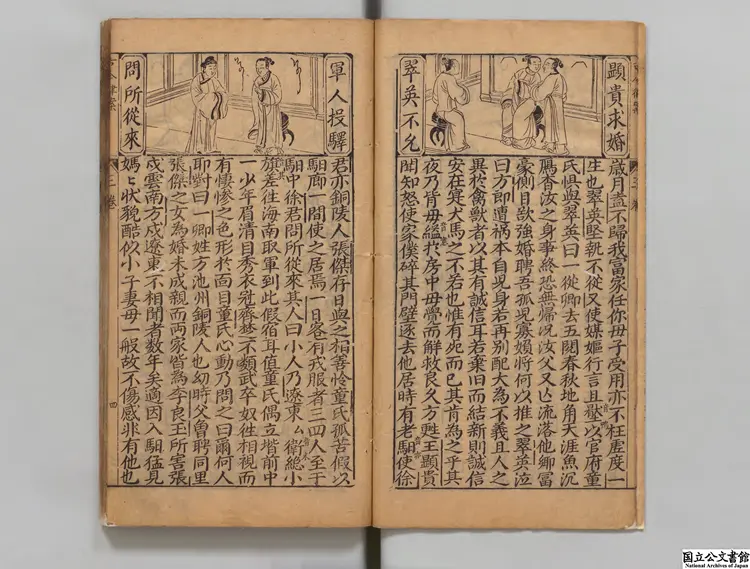 顕貴求婚
翠英不允
歲月盖不歸我富家任你毋子受用亦不枉虛度一
生也翠英堅執不從又使媒嫗行言且壓以官府童
氏惧與翠英曰一從卿去五閱春秋地角天涯魚沉
鴈杳汝之身事終恐無歸况汝父又亾流落他鄉富
豪側目欲強婚聘吾孤兒寡婦將何以推之翠英泣
曰方即遭禍本自兒身若再别配大為不義且人之
異於禽獸者以其有誠信耳若棄旧而結新則誠信
安在寔犬馬之不若也惟有死而已其肯為之乎其
夜乃背毋縊於房中毋覺而解救良久方甦王顕貴
聞知怒使家僕碎其門壁逐去他居時有老馹使徐
三卷
軍人投驛
問所從來
君亦銅陵人張傑存日與之相善怜童氏孤苦假以
馹廊一間使之居焉一日客有戎服者三四人至于
馹中徐君問所從來其人曰小人乃遼東厶衛總小
旗差往海南取軍到此假宿耳值童氏偶立堦前中
一少年眉清目秀衣冠齊楚不類武卒奴徃相視而
有悽慘之色形於面目童氏心動乃問之曰爾何人
耶對曰一卿姓方池州銅陵人也幼時父曽聘同里
張傑之女為婚未成親而兩家皆為李良玉所害張
戍雲南方戍遼東不相聞者数年矣適因入馹猛見
媽〻狀貌酷似小子妻毋一般故不傷感非有他也
三卷
四
国立公文書館
National Archives of Japan